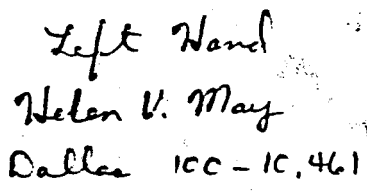 Left Hand
Helen V. May
Dallas 1CC-1C,461